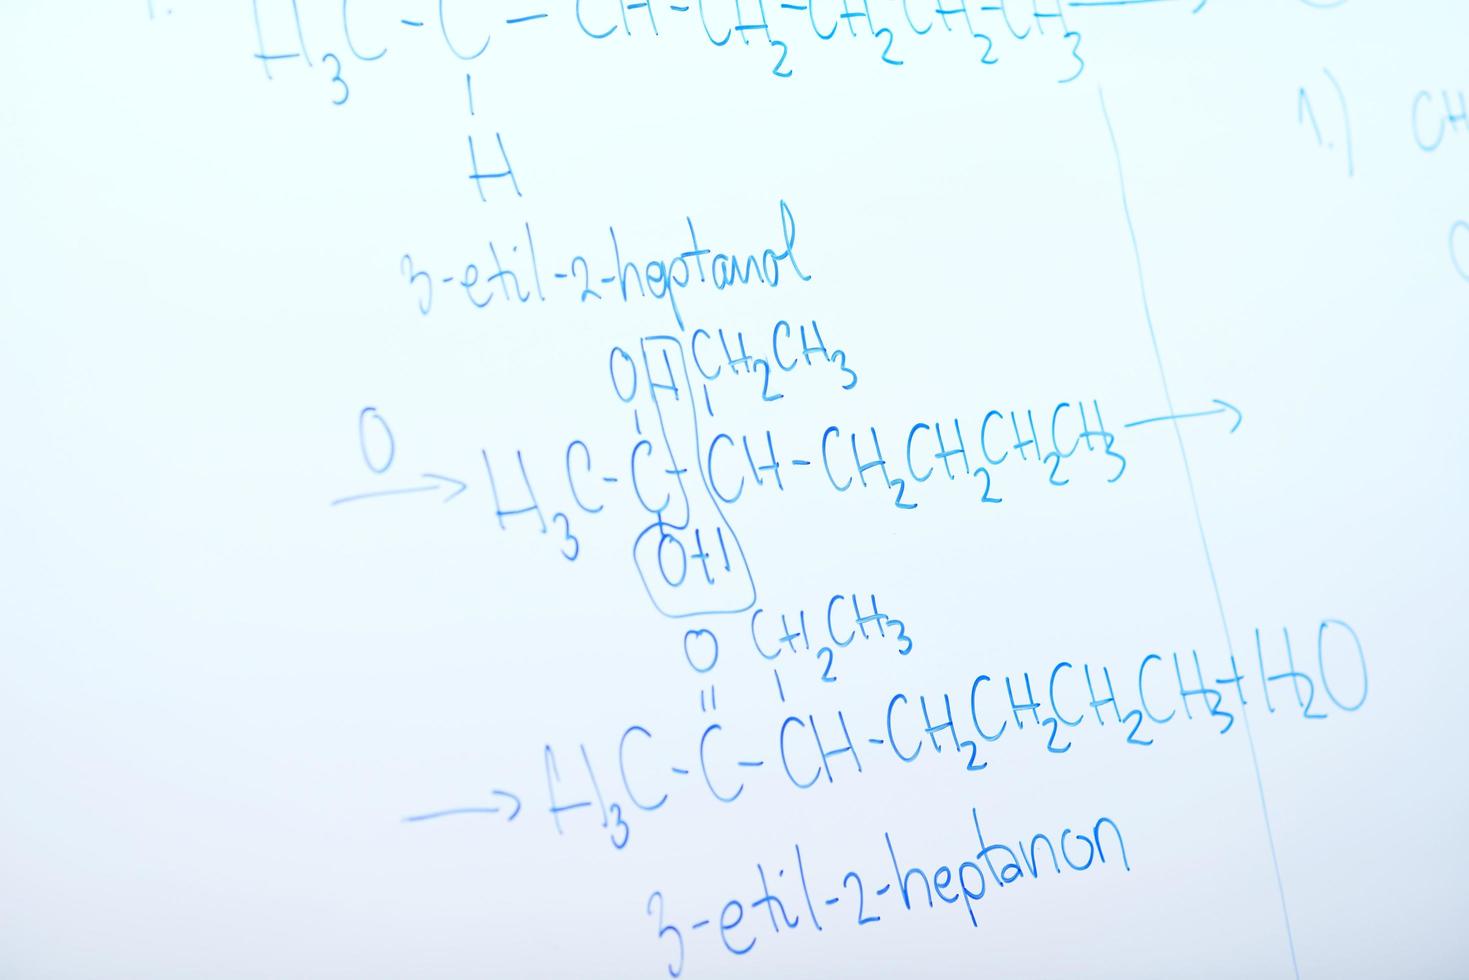 H3C - C - CH - CH2 - CH2CH2CH3 →
H
3-etil-2-heptanol
OH CH2CH3
O → H3C - C - CH - CH2CH2CH2CH3 →
OH
O CH2CH3
→ H3C - C - CH - CH2CH2CH2CH3 + H2O
3-etil-2-heptanon
1.) CH